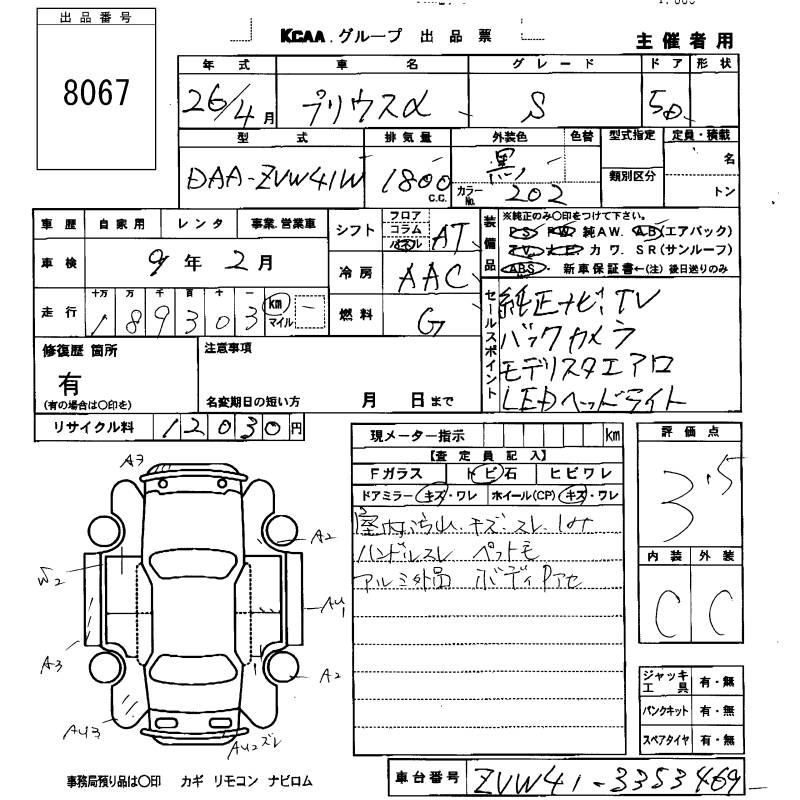 出品番号
8067
KCAA.グループ 出品票
主催者用
年式 車名 グレード ドア 形状
26/4月 プリウスα S 5D
型式 排気量 外装色 色替 型式指定 定員・積載
DAA-ZVW41W 1800 C.C. 黒 類別区分 名
カラーNo. 202 トン
車歴 自家用 レンタ 事業.営業車
シフト フロア コラム パネル AT
装備品 ※純正のみ○印をつけて下さい。
PS PW 純AW. AB(エアバック)
TV ナビ カワ. SR(サンルーフ)
ABS・新車保証書←(注)後日送りのみ
車検 9年2月
冷房 AAC
走行 十万 万 千 百 十 一
189303 km マイル
燃料 G
セールスポイント
純正ナビ.TV
バックカメラ
モデリスタエアロ
LEDヘッドライト
修復歴 箇所
有
(有の場合は○印を)
注意事項
名変期日の短い方 月 日まで
リサイクル料 12030円
現メーター指示 km
【査定員記入】
Fガラス トビ石 ヒビワレ
ドアミラー キズ・ワレ ホイール(CP) キズ・ワレ
室内汚れ.キズ.スレ
ハンドルスレ ペット毛
アルミ外品 ボディ
評価点
3.5
内装 外装
C C
A3
A2
W2
AU1
A3
A2
AU3
AU2ズレ
ジャッキ工具 有・無
パンクキット 有・無
スペアタイヤ 有・無
事務局預り品は○印 カギ リモコン ナビロム
車台番号 ZVW41-3353469